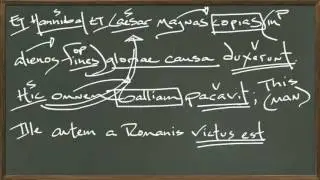 S S
Et Hannibal et Caesar magnas copias (in P
OP V
alienos fines) gloriae causa duxerunt.
S V This
Hic omnem Galliam pacavit; (man)
Ille autem a Romanis victus est